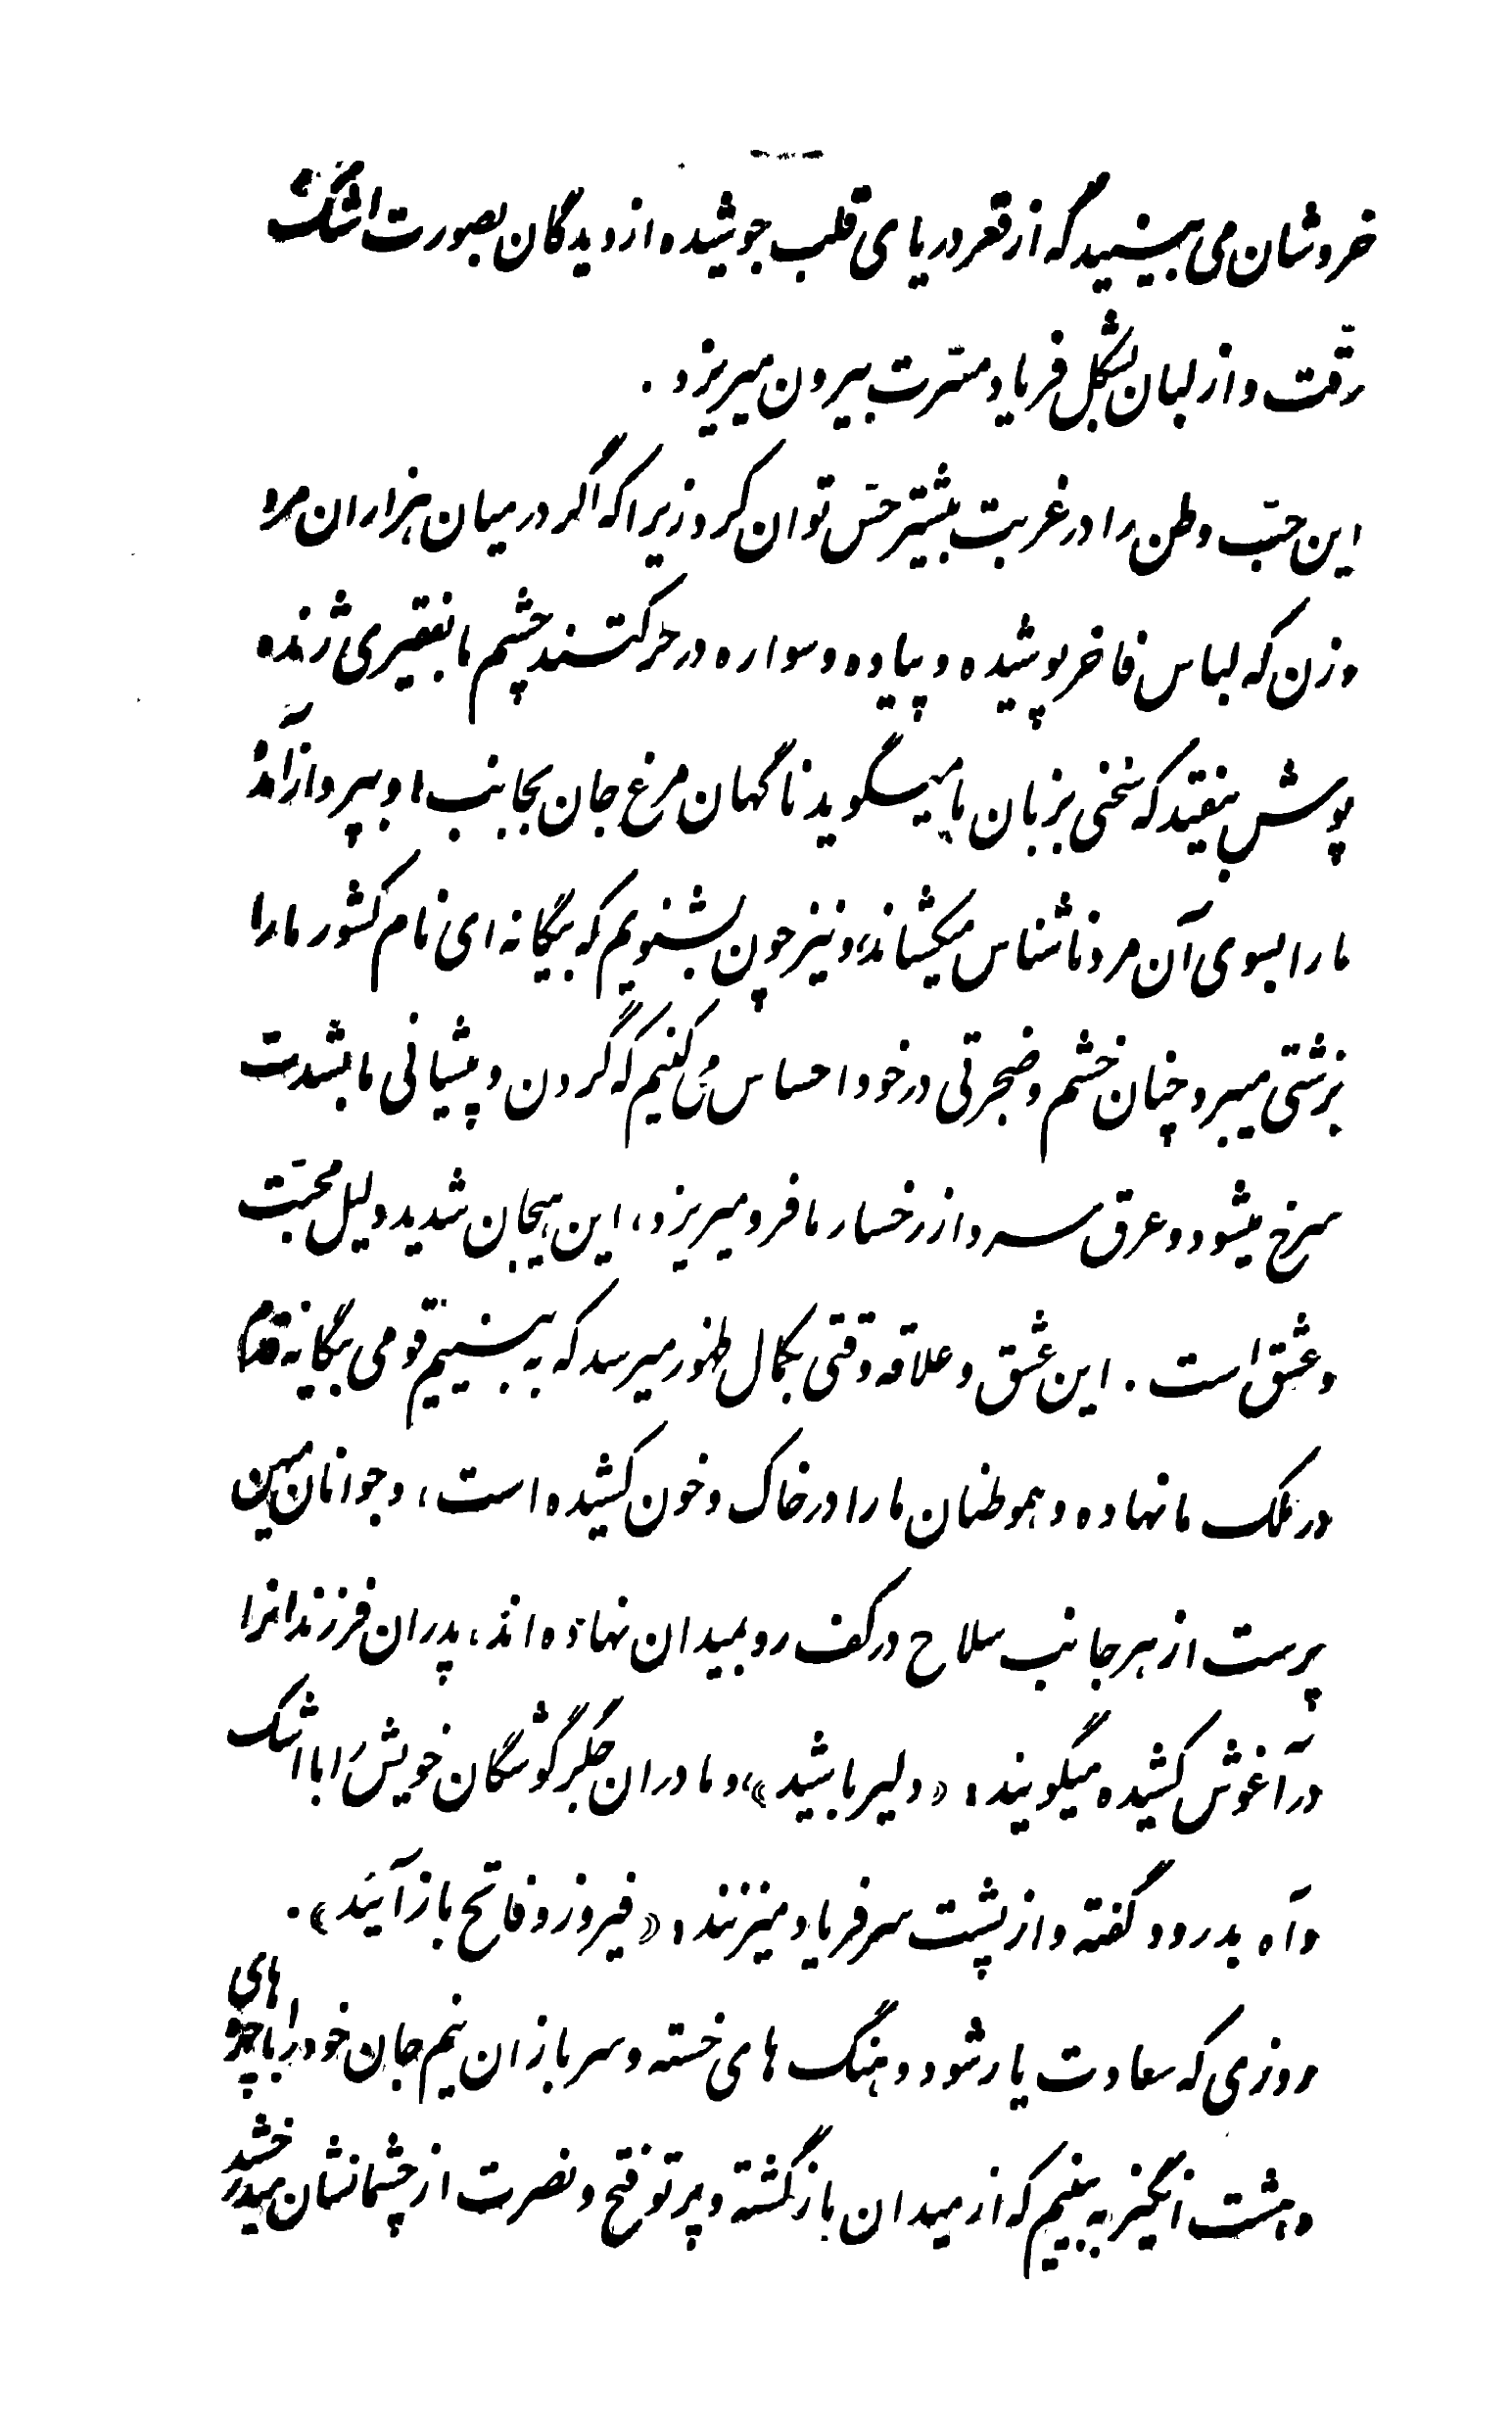 خروشان می بینید که از قعر دریای قلب جوشیده از دیدگان بصورت اشک
رقّت و از لبان بشکل فریاد مسرّت بیرون میریزد .
این حبّ وطن را در غربت بیشتر حسّ توان کرد زیرا که اگر در میان هزاران مرد
و زن که لباس فاخر پوشیده و پیاده و سواره در حرکتند چشم ما بفقیری ژنده
پوش بیفتد که سخنی بزبان ما میگوید ناگهان مرغ جان بجانب او بپرواز آمده
ما را بسوی آن مرد ناشناس میکشاند، و نیز چون بشنویم که بیگانه ای نام کشور ما را
بزشتی میبرد چنان خشم و ضجرتی در خود احساس می کنیم که گردن و پیشانی ما بشدت
سرخ میشود و عرق سرد از رخسار ما فرو میریزد، این هیجان شدید دلیل محبّت
و عشق است . این عشق و علاقه وقتی بکمال ظهور میرسد که به بینیم قومی بیگانه قدم
در ملک ما نهاده و هموطنان ما را در خاک و خون کشیده است، و جوانان میهن
پرست از هر جانب سلاح در کف رو بمیدان نهاده اند، پدران فرزندانرا
در آغوش کشیده میگویند : «دلیر باشید»، و مادران جگرگوشگان خویش را با اشک
و آه بدرود گفته و از پشت سر فریاد میزنند : «فیروز و فاتح باز آئید» .
روزی که سعادت یار شود و هنگ های خسته و سربازان نیم جان خود را با چهره های
دهشت انگیز به بینیم که از میدان بازگشته و پرتو فتح و نصرت از چشمانشان میدرخشد